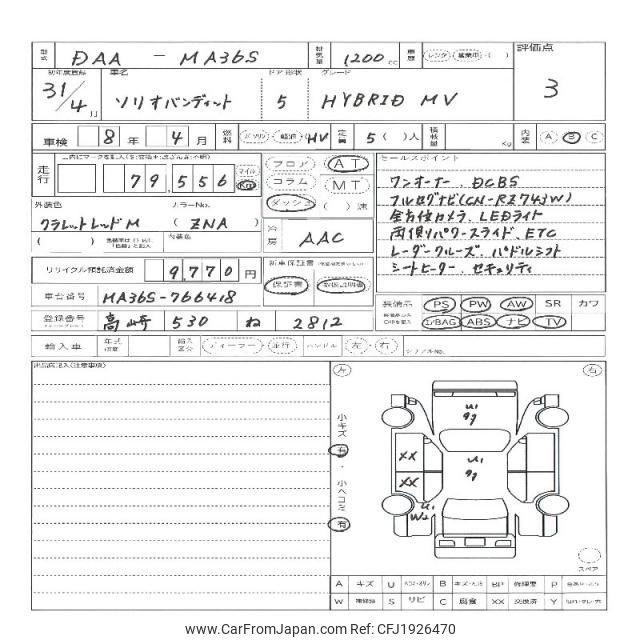 型式 DAA - MA36S 排気量 1200 cc 車歴 レンタ ( ) 評価点
初年度登録 車名 ドア形状 グレード
31/4月 ソリオバンディット 5 HYBRID MV 3
車検 8年 4月 燃料 ガソリン 軽油 HV 定員 5( )人 積載量 Kg 内装 A B C
走行 79,556 マイル Km
フロア AT
コラム MT
ダッシュ ( )速
セールスポイント
ワンオーナー . DCBS
フルセグナビ(CN-RZ743W)
全方位カメラ. LEDライト
両側パワースライド. ETC
レーダークルーズ. パドルシフト
シートヒーター. セキュリティ
外装色 カラーNo.
クラレットレッドM ( ZNA )
( ) 内装色
冷房 AAC
リサイクル預託済金額 9,770 円
新車保証書
保証書 取扱説明書
車台番号 MA36S-766418
装備品 PS PW AW SR カワ
エアBAG ABS ナビ TV
登録番号 高崎 530 ね 2812
輸入車 年式 輸入区分 ディーラー 並行 ハンドル 左・右 シリアルNo.
出品店記入(注意事項)
左 右
小キズ 有 ・ 小ヘコミ 有
U1
A9
U1
A9
XX
XX
U1
W2
スペア
A キズ U B BP 修理要 P
W S サビ C 腐食 XX 交換済 Y
www.CarFromJapan.com - CFJ1926470